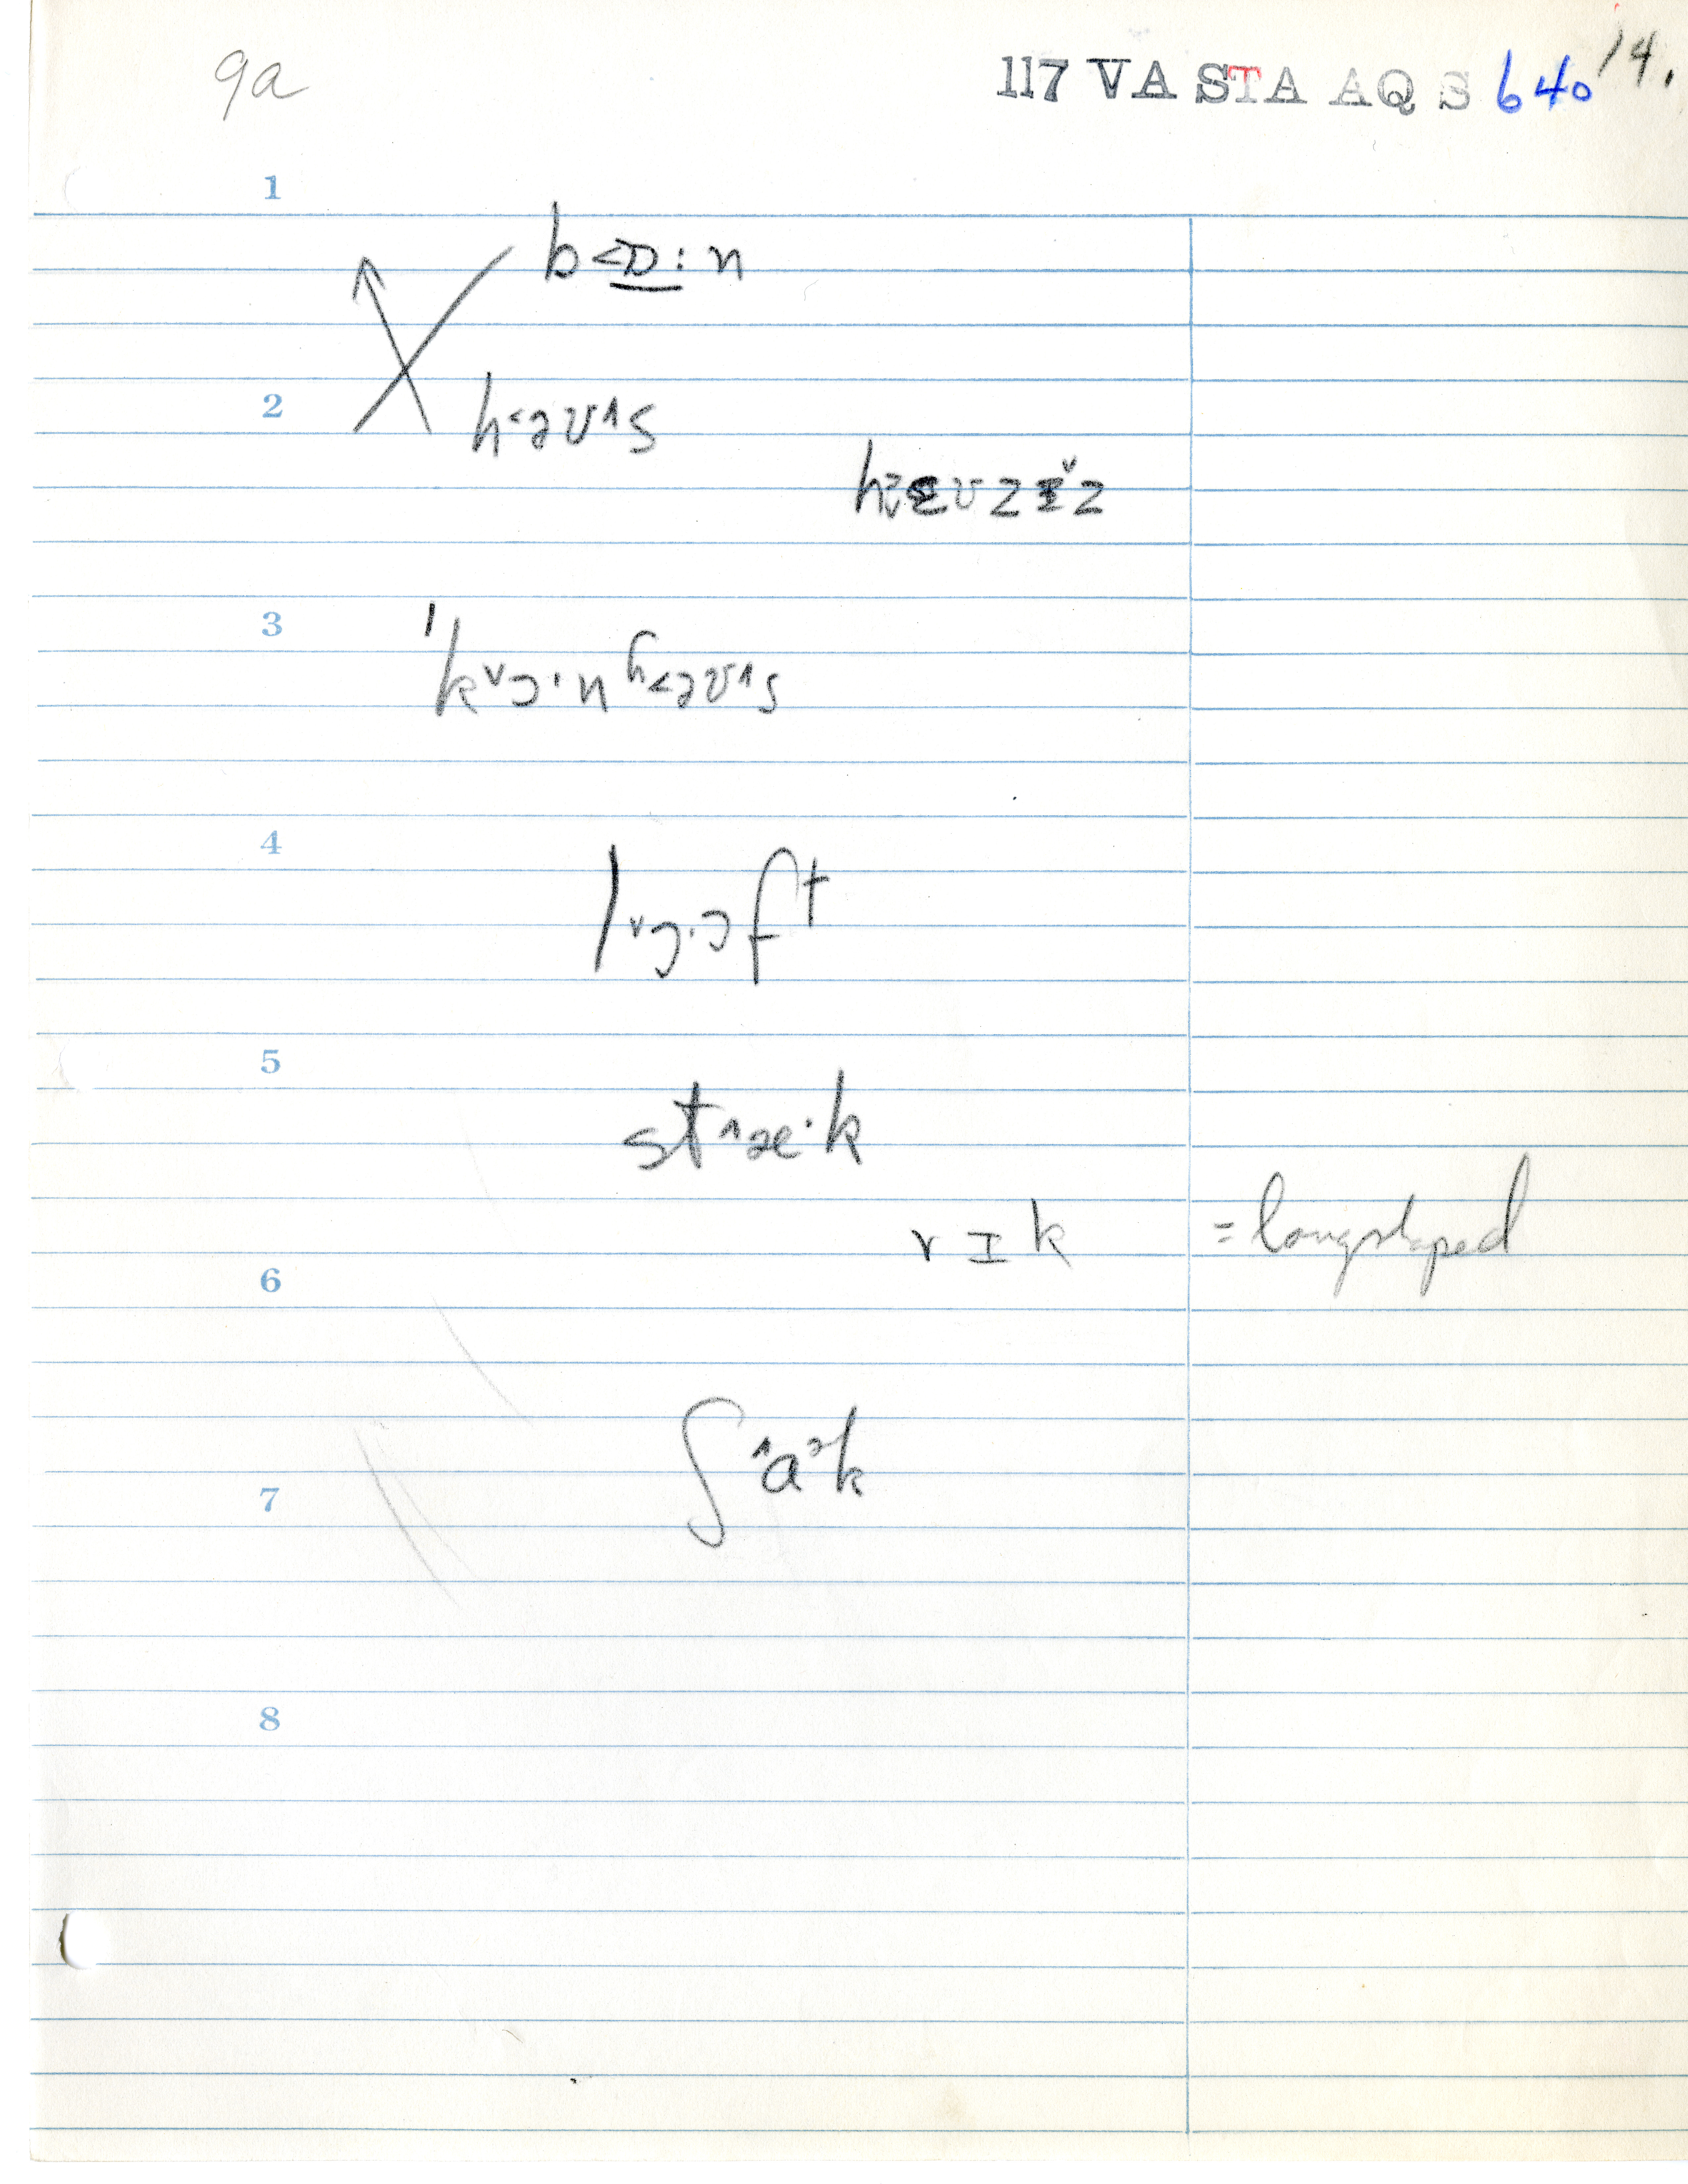 9a
117 VA STA AQ S 640 14.
1
b<ɒ:n
2
h<əʊ^s
3
ˈkᵛɔ·nʰ<əʊ^s
4
lᵛɔ·ɔfᵗ
5
st^æ·k
rɪk = longshaped
6
ʃ^aᵊk
7
8